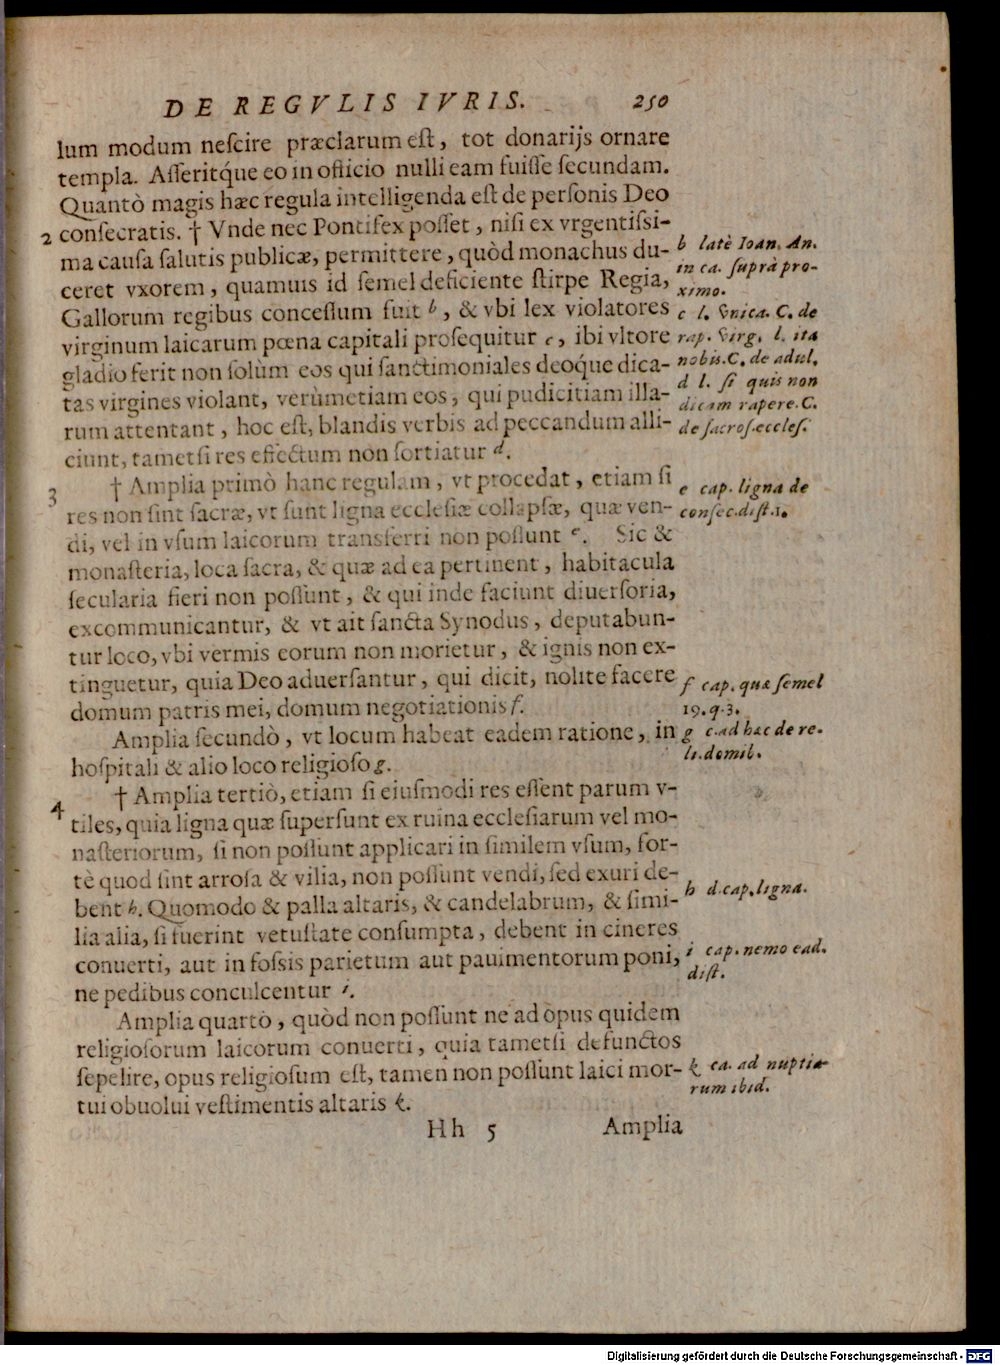 DE REGVLIS IVRIS. 250
lum modum neſcire præclarum eſt, tot donarijs ornare
templa. Aſſeritq́ue eo in officio nulli eam fuiſſe ſecundam.
Quantò magis hæc regula intelligenda eſt de perſonis Deo
2 conſecratis. † Vnde nec Pontifex poſſet, niſi ex vrgentiſsi-
ma cauſa ſalutis publicæ, permittere, quòd monachus du-
ceret vxorem, quamuis id ſemel deficiente ſtirpe Regia,
Gallorum regibus conceſſum fuit b, & vbi lex violatores
virginum laicarum pœna capitali proſequitur c, ibi vltore
gladio ferit non ſolùm eos qui ſanctimoniales deoq́ue dica-
tas virgines violant, verùmetiam eos, qui pudicitiam illa-
rum attentant, hoc eſt, blandis verbis ad peccandum alli-
ciunt, tametſi res effectum non ſortiatur d.
3 † Amplia primò hanc regulam, vt procedat, etiam ſi
res non ſint ſacræ, vt ſunt ligna eccleſiæ collapſæ, quæ ven-
di, vel in vſum laicorum transferri non poſſunt e. Sic &
monaſteria, loca ſacra, & quæ ad ea pertinent, habitacula
ſecularia fieri non poſſunt, & qui inde faciunt diuerſoria,
excommunicantur, & vt ait ſancta Synodus, deputabun-
tur loco, vbi vermis eorum non morietur, & ignis non ex-
tinguetur, quia Deo aduerſantur, qui dicit, nolite facere
domum patris mei, domum negotiationis f.
Amplia ſecundò, vt locum habeat eadem ratione, in
hoſpitali & alio loco religioſo g.
4 † Amplia tertiò, etiam ſi eiuſmodi res eſſent parum v-
tiles, quia ligna quæ ſuperſunt ex ruina eccleſiarum vel mo-
naſteriorum, ſi non poſſunt applicari in ſimilem vſum, for-
tè quod ſint arroſa & vilia, non poſſunt vendi, ſed exuri de-
bent h. Quomodo & palla altaris, & candelabrum, & ſimi-
lia alia, ſi fuerint vetuſtate conſumpta, debent in cineres
conuerti, aut in foſsis parietum aut pauimentorum poni,
ne pedibus conculcentur i.
Amplia quartò, quòd non poſſunt ne ad opus quidem
religioſorum laicorum conuerti, quia tametſi defunctos
ſepelire, opus religioſum eſt, tamen non poſſunt laici mor-
tui obuolui veſtimentis altaris k.
Hh 5 Amplia
b latè Ioan. An.
in ca. ſuprà pro-
ximo.
c l. vnica. C. de
rap. virg. l. ita
nobis. C. de adul.
d l. ſi quis non
dicam rapere. C.
de ſacroſ. eccleſ.
e cap. ligna de
conſec. diſt. 1.
f cap. quæ ſemel
19. q. 3.
g c. ad hæc de re-
li. domib.
h d. cap. ligna.
i cap. nemo ead.
diſt.
k ca. ad nuptia-
rum ibid.
Digitalisierung gefördert durch die Deutsche Forschungsgemeinschaft - DFG